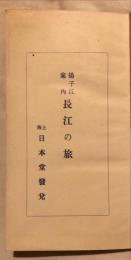 揚子江案内 長江の旅
上海 日本堂發兌